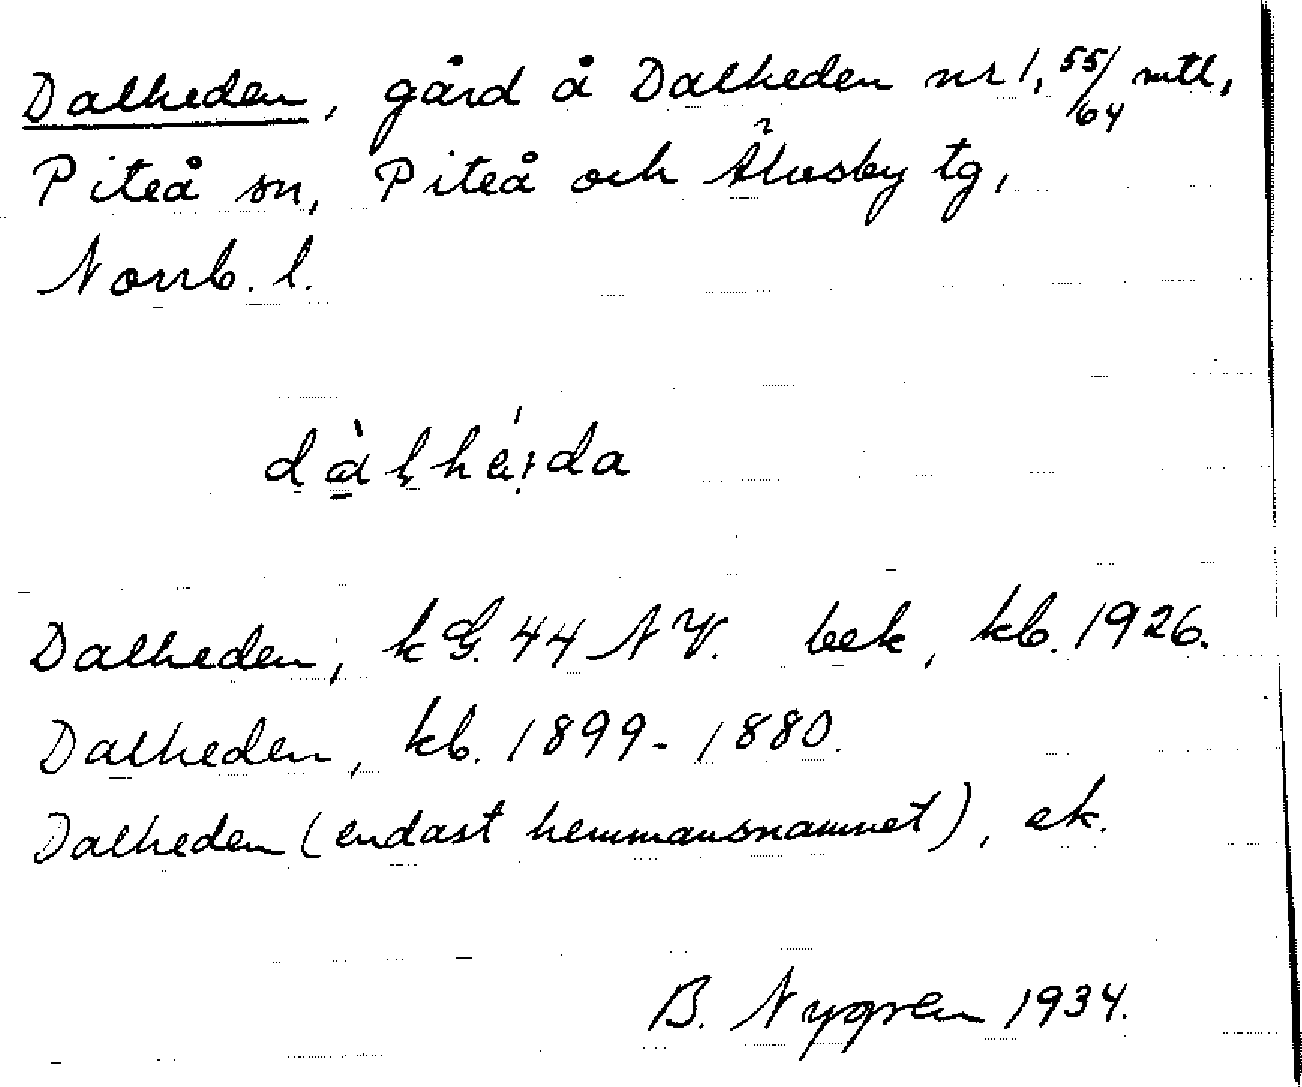 Dalheden, gård å Dalheden nr 1, 55/64 mtl,
Piteå sn, Piteå och Älvsby tg,
Norrb. l.
dàlhé:da
Dalheden, k G. 44 N V. bek, kb. 1926.
Dalheden, kb. 1899-1880.
Dalheden (endast hemmansnamnet), ek.
B. Nygren 1934.